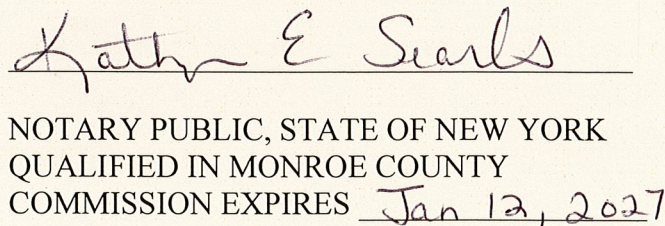 Kathryn E Searls
NOTARY PUBLIC, STATE OF NEW YORK
QUALIFIED IN MONROE COUNTY
COMMISSION EXPIRES Jan 12, 2027